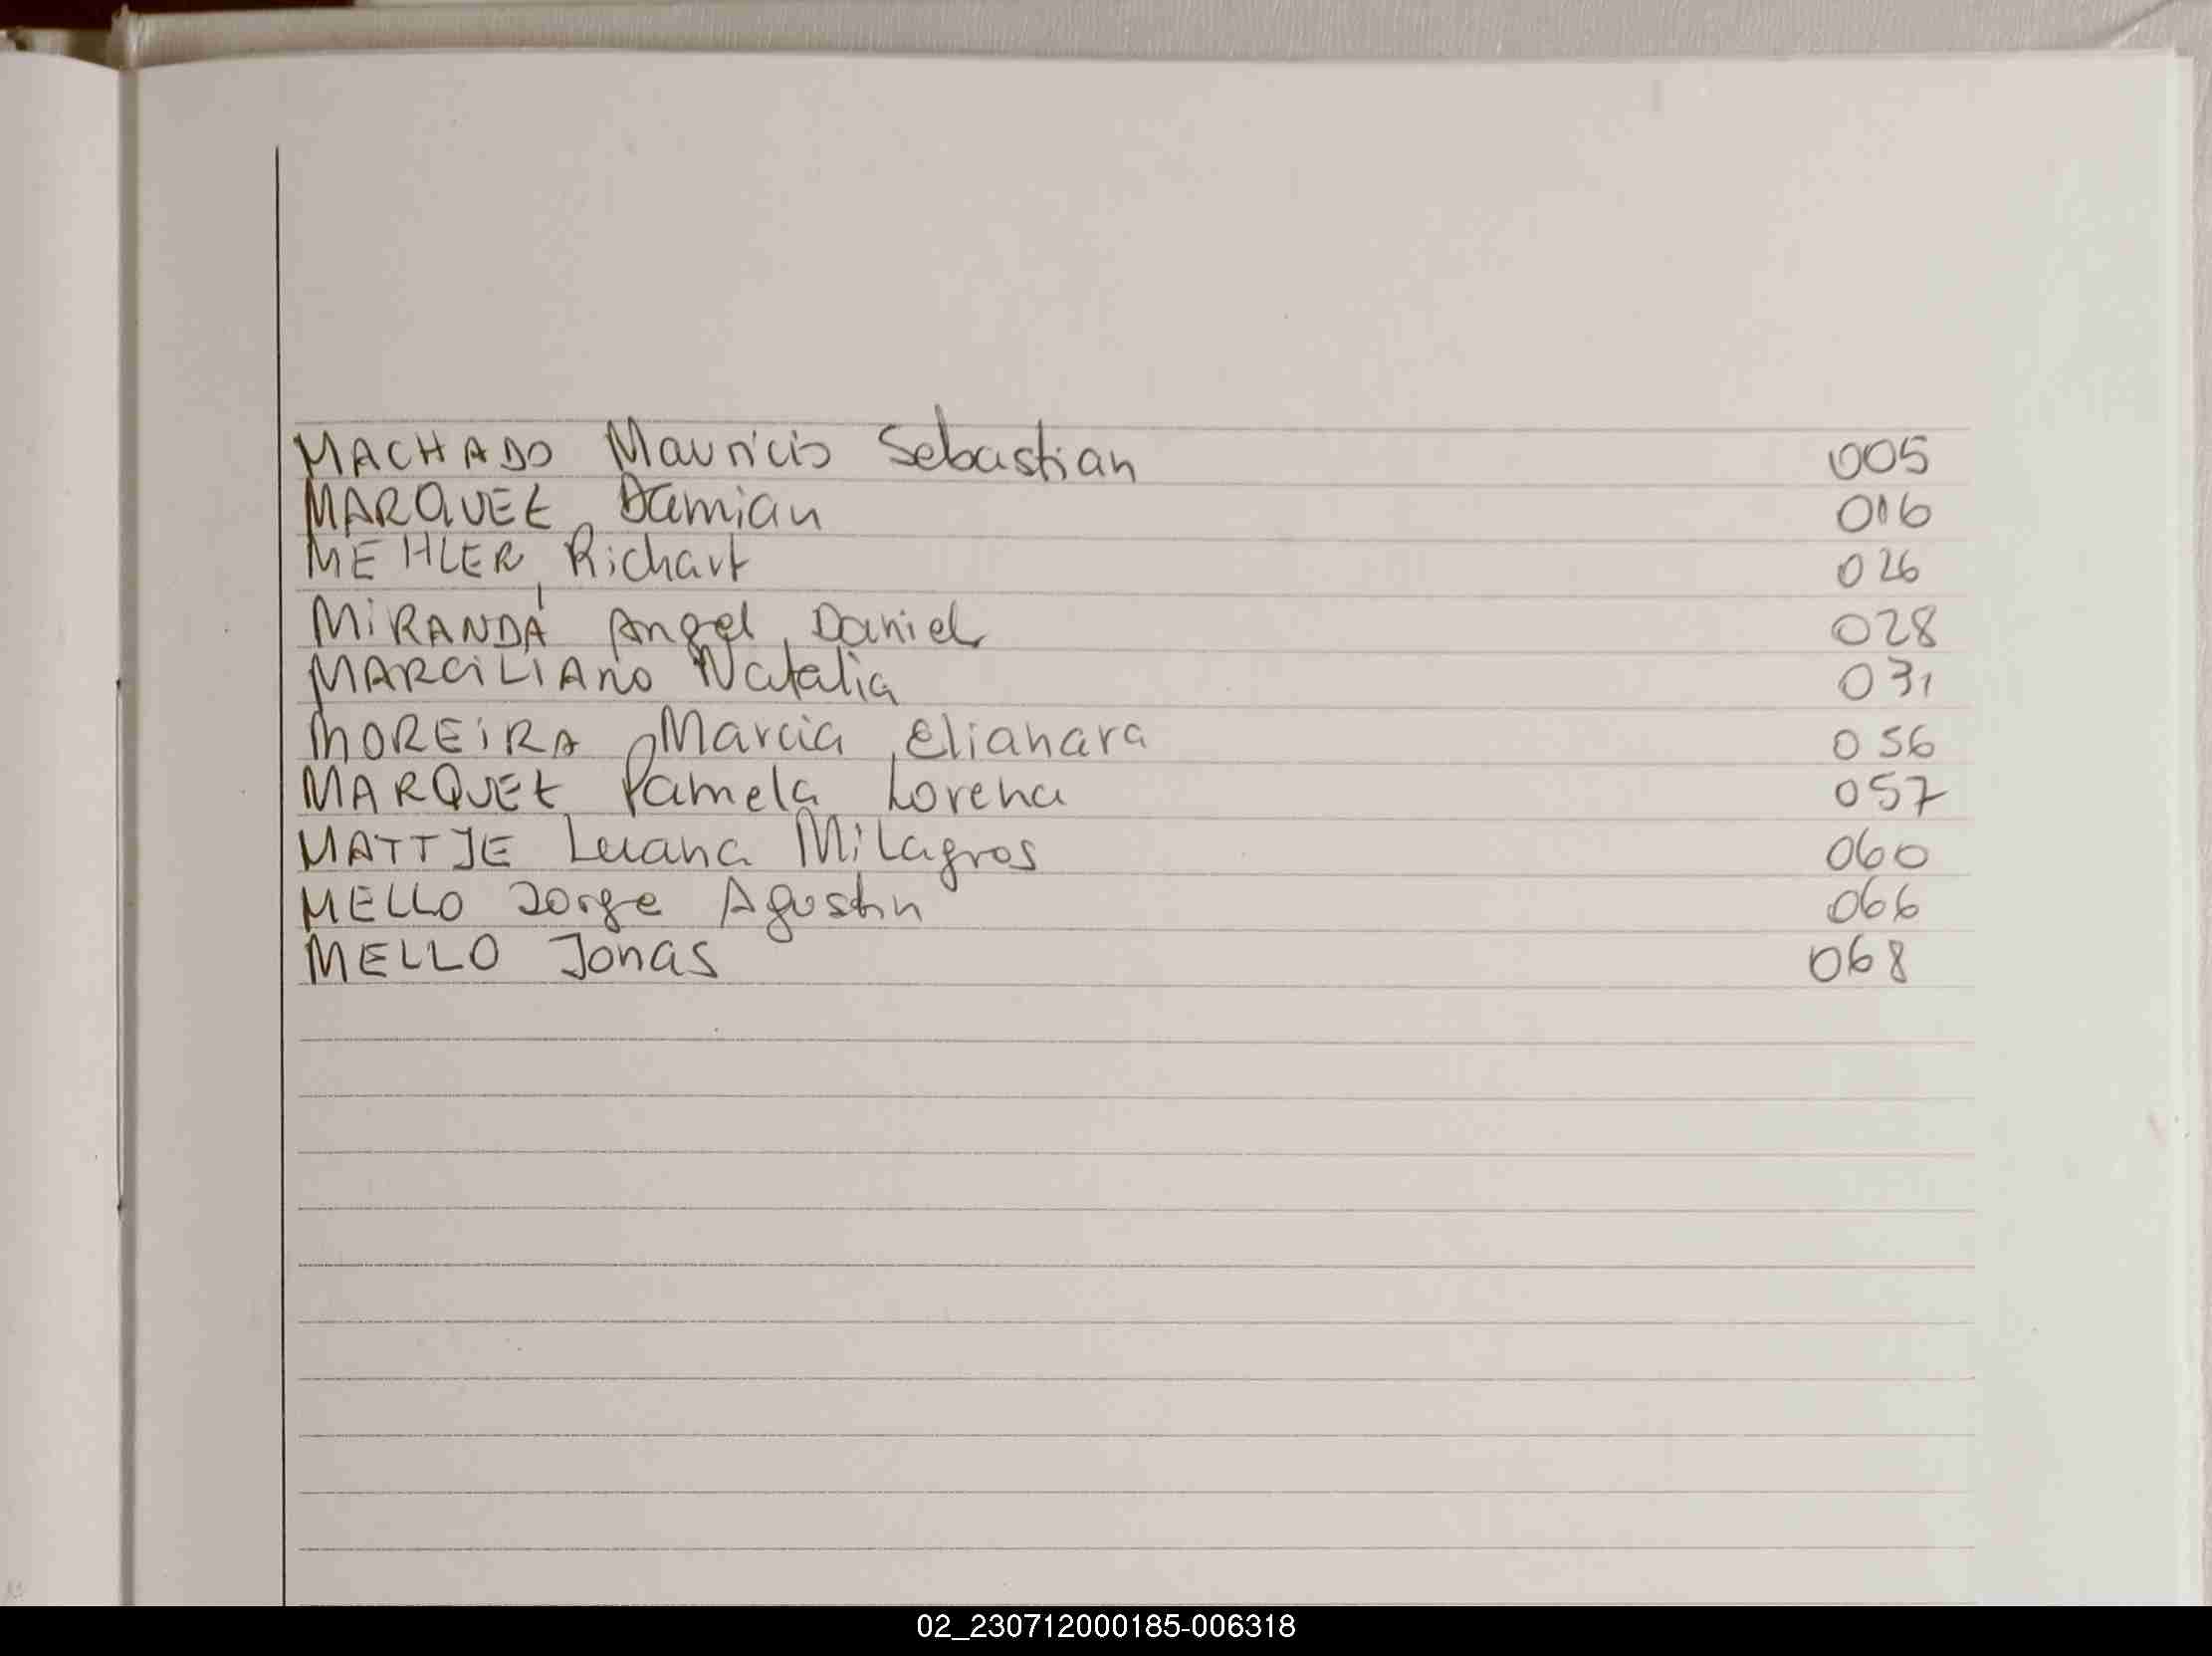 MACHADO Mauricio Sebastian 005
MARQUEZ Damian 016
MEHLER Richart 026
MIRANDA Angel Daniel 028
MARCILIANO Natalia 031
MOREIRA Marcia Elianara 056
MARQUEZ Pamela Lorena 057
MATTJE Luana Milagros 060
MELLO Jorge Agustin 066
MELLO Jonas 068
02_230712000185-006318